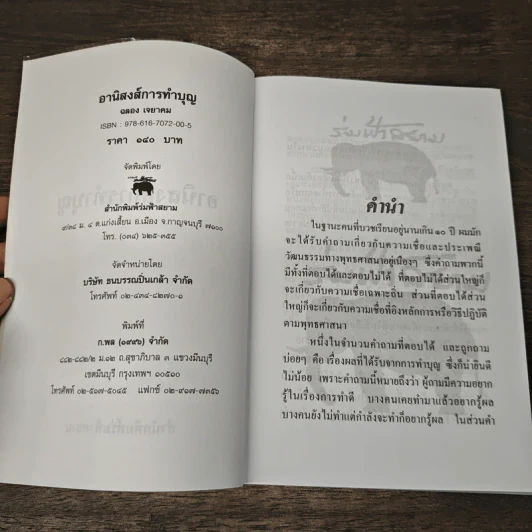 อานิสงส์การทำบุญ
ฉลอง เจยาคม
ISBN : 978-616-7072-00-5
ราคา ๑๔๐ บาท
จัดพิมพ์โดย
สำนักพิมพ์ร่มฟ้าสยาม
ต.แก่งเสี้ยน อ.เมือง จ.กาญจนบุรี ๗๑๐๐๐
โทร. (๐๓๔) ๖๒๕-๓๕๕
จัดจำหน่ายโดย
บริษัท ธนบรรณปิ่นเกล้า จำกัด
โทรศัพท์ ๐๒-๔๓๔-๔๒๗๐-๑
พิมพ์ที่
ก.พล (๑๙๙๖) จำกัด
ม.๑๒ ถ.สุขาภิบาล ๓ แขวงมีนบุรี
เขตมีนบุรี กรุงเทพฯ ๑๐๕๑๐
โทรศัพท์ ๐๒-๕๑๗-๕๐๔๕ แฟกซ์ ๐๒-๙๑๗-๗๓๕๖
ร่มฟ้าสยาม
คำนำ
ในฐานะคนที่บวชเรียนอยู่นานเกิน ๑๐ ปี ผมมัก
จะได้รับคำถามเกี่ยวกับความเชื่อและประเพณี
วัฒนธรรมทางพุทธศาสนาอยู่เนืองๆ ซึ่งคำถามพวกนี้
มีทั้งที่ตอบได้และตอบไม่ได้ ที่ตอบไม่ได้ส่วนใหญ่ก็
จะเกี่ยวกับความเชื่อเฉพาะถิ่น ส่วนที่ตอบได้ส่วน
ใหญ่ก็จะเกี่ยวกับความเชื่อที่อิงหลักการหรือวิธีปฏิบัติ
ตามพุทธศาสนา
หนึ่งในจำนวนคำถามที่ตอบได้ และถูกถาม
บ่อยๆ คือ เรื่องผลที่ได้รับจากการทำบุญ ซึ่งก็น่ายินดี
ไม่น้อย เพราะคำถามนี้หมายถึงว่า ผู้ถามมีความอยาก
รู้ในเรื่องการทำดี บางคนเคยทำมาแล้วอยากรู้ผล
บางคนยังไม่ทำแต่กำลังจะทำก็อยากรู้ผล ในส่วนคำ